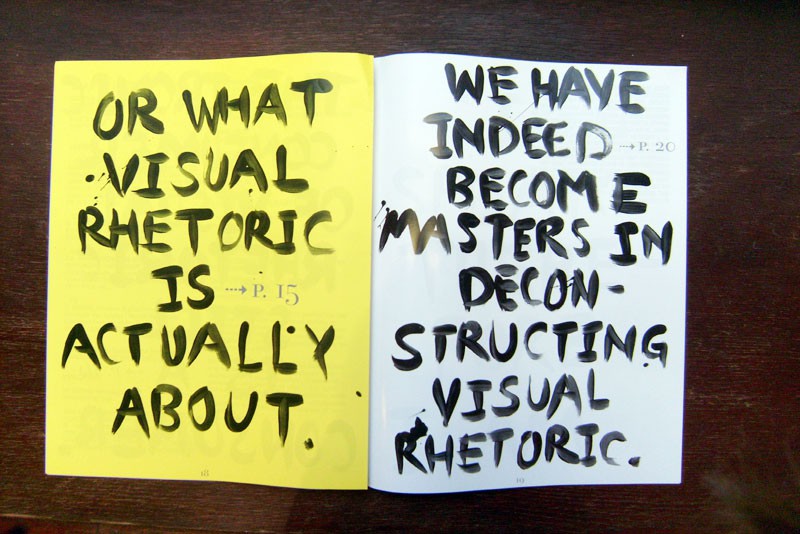 OR WHAT
VISUAL
RHETORIC
IS ⇢ P. 15
ACTUALLY
ABOUT.
18
WE HAVE
INDEED ⇢ P. 20
BECOME
MASTERS IN
DECON-
STRUCTING
VISUAL
RHETORIC.
19